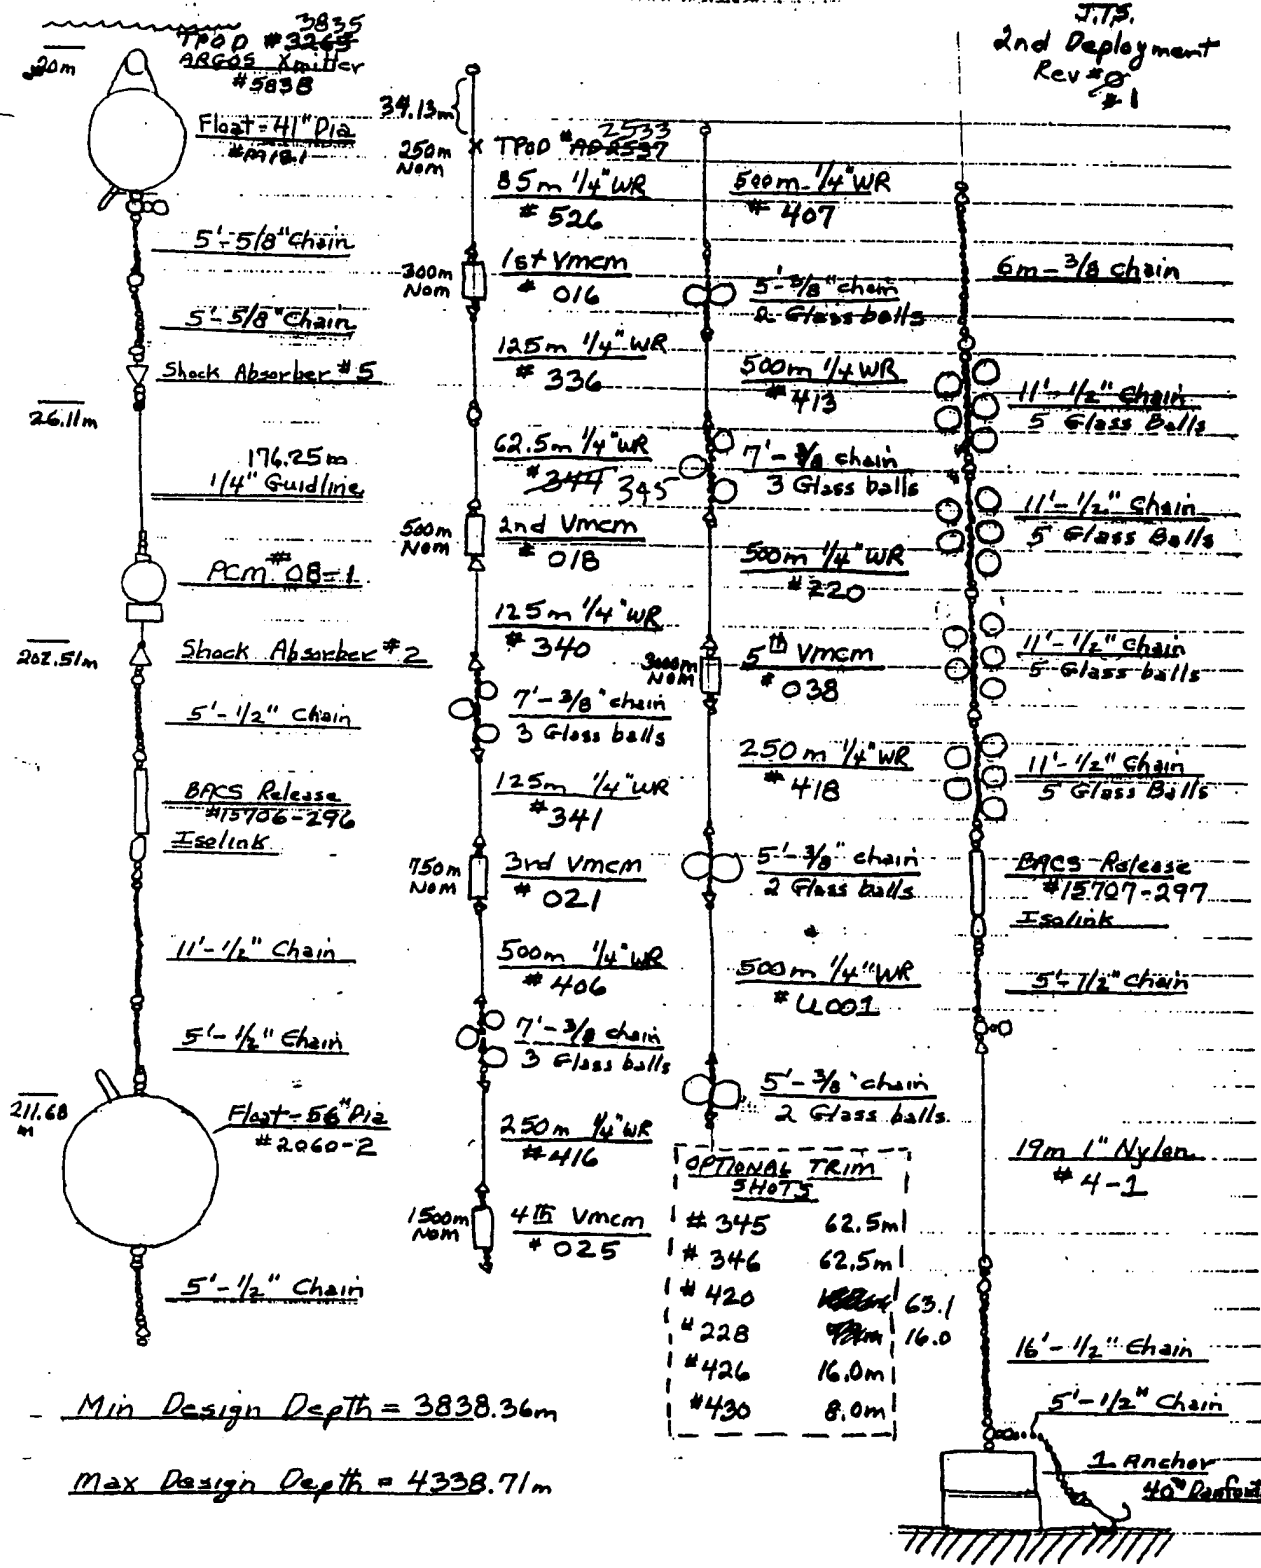 3835
TPOD #3265
ARGOS Xmitter
#5838
20m
Float-41" Dia
5'-5/8" Chain
5'-5/8" Chain
Shock Absorber #5
26.11m
176.25m
1/4" Guidline
PCM #08-1
202.51m
Shock Absorber #2
5'-1/2" Chain
BACS Release
#15706-296
Isolink
11'-1/2" Chain
5'-1/2" Chain
211.68
m
Float-56" Dia
#2060-2
5'-1/2" Chain
Min Design Depth = 3838.36m
Max Design Depth = 4338.71m
34.13m
2533
250m
Nom
X TPOD #
85m 1/4" WR
# 526
300m
Nom
1st Vmcm
# 016
125m 1/4" WR
# 336
62.5m 1/4" WR
#344 345
500m
Nom
2nd Vmcm
# 018
125m 1/4" WR
# 340
7'-3/8" chain
3 Glass balls
125m 1/4" WR
#341
750m
Nom
3rd Vmcm
# 021
500m 1/4" WR
# 406
7'-3/8 chain
3 Glass balls
250m 1/4" WR
#416
1500m
Nom
4th Vmcm
# 025
500m 1/4" WR
# 407
5'-3/8" chain
2 Glass balls
500m 1/4 WR
#413
7'-3/8 chain
3 Glass balls
500m 1/4" WR
#220
3000m
Nom
5th Vmcm
# 038
250m 1/4" WR
# 418
5'-3/8" chain
2 Glass balls
500m 1/4" WR
# U001
5'-3/8" chain
2 Glass balls
OPTIONAL TRIM
SHOTS
# 345 62.5m
# 346 62.5m
# 420 63.1
# 228 16.0
#426 16.0m
#430 8.0m
J.T.S.
2nd Deployment
Rev #0
#1
6m-3/8 chain
11'-1/2" Chain
5 Glass Balls
11'-1/2" Chain
5 Glass Balls
11'-1/2" Chain
5 Glass balls
11'-1/2" Chain
5 Glass Balls
BACS Release
#15707-297
Isolink
5'-1/2" chain
19m 1" Nylon
# 4-1
16'-1/2" Chain
5'-1/2" Chain
1 Anchor